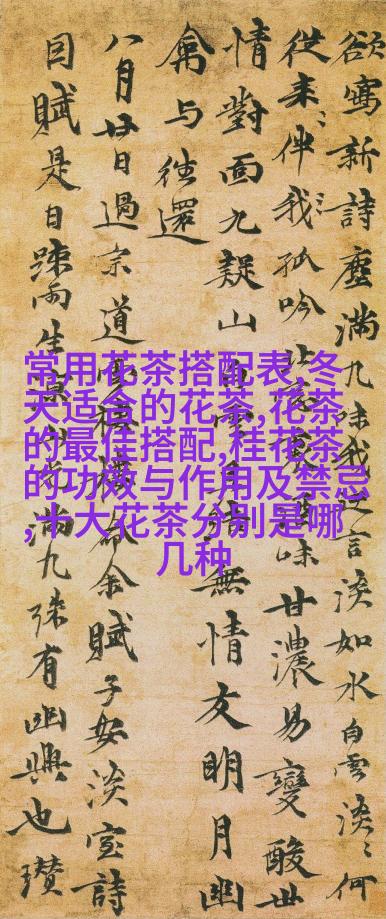 常用花茶搭配表,冬
天适合的花茶,花茶
的最佳搭配,桂花茶
的功效与作用及禁忌
,十大花茶分别是哪
几种
欲寫新詩塵滿几味我言淡如水白雲淡淡何
從來伴我孤吟味甘濃易變酸世
情對面九疑山無情友明月幽
禽与往還
八月廿日過宗道命余賦子安淡室詩
因賦是日疎雨生涼滿九殊有幽興也瓚